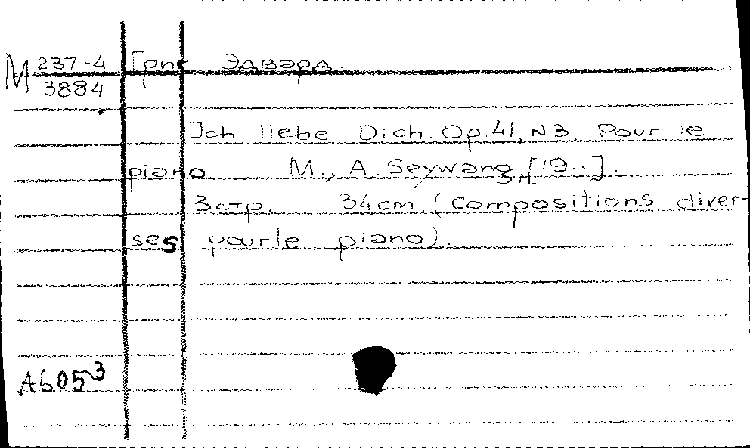 М 237-4
3884
Григ Эдвард.
Ich liebe Dich. Op.41, N3. Pour le
piano M., A. Seywang, [19..].
3 стр. 34 cm (Compositions diver-
ses pour le piano).
А605³